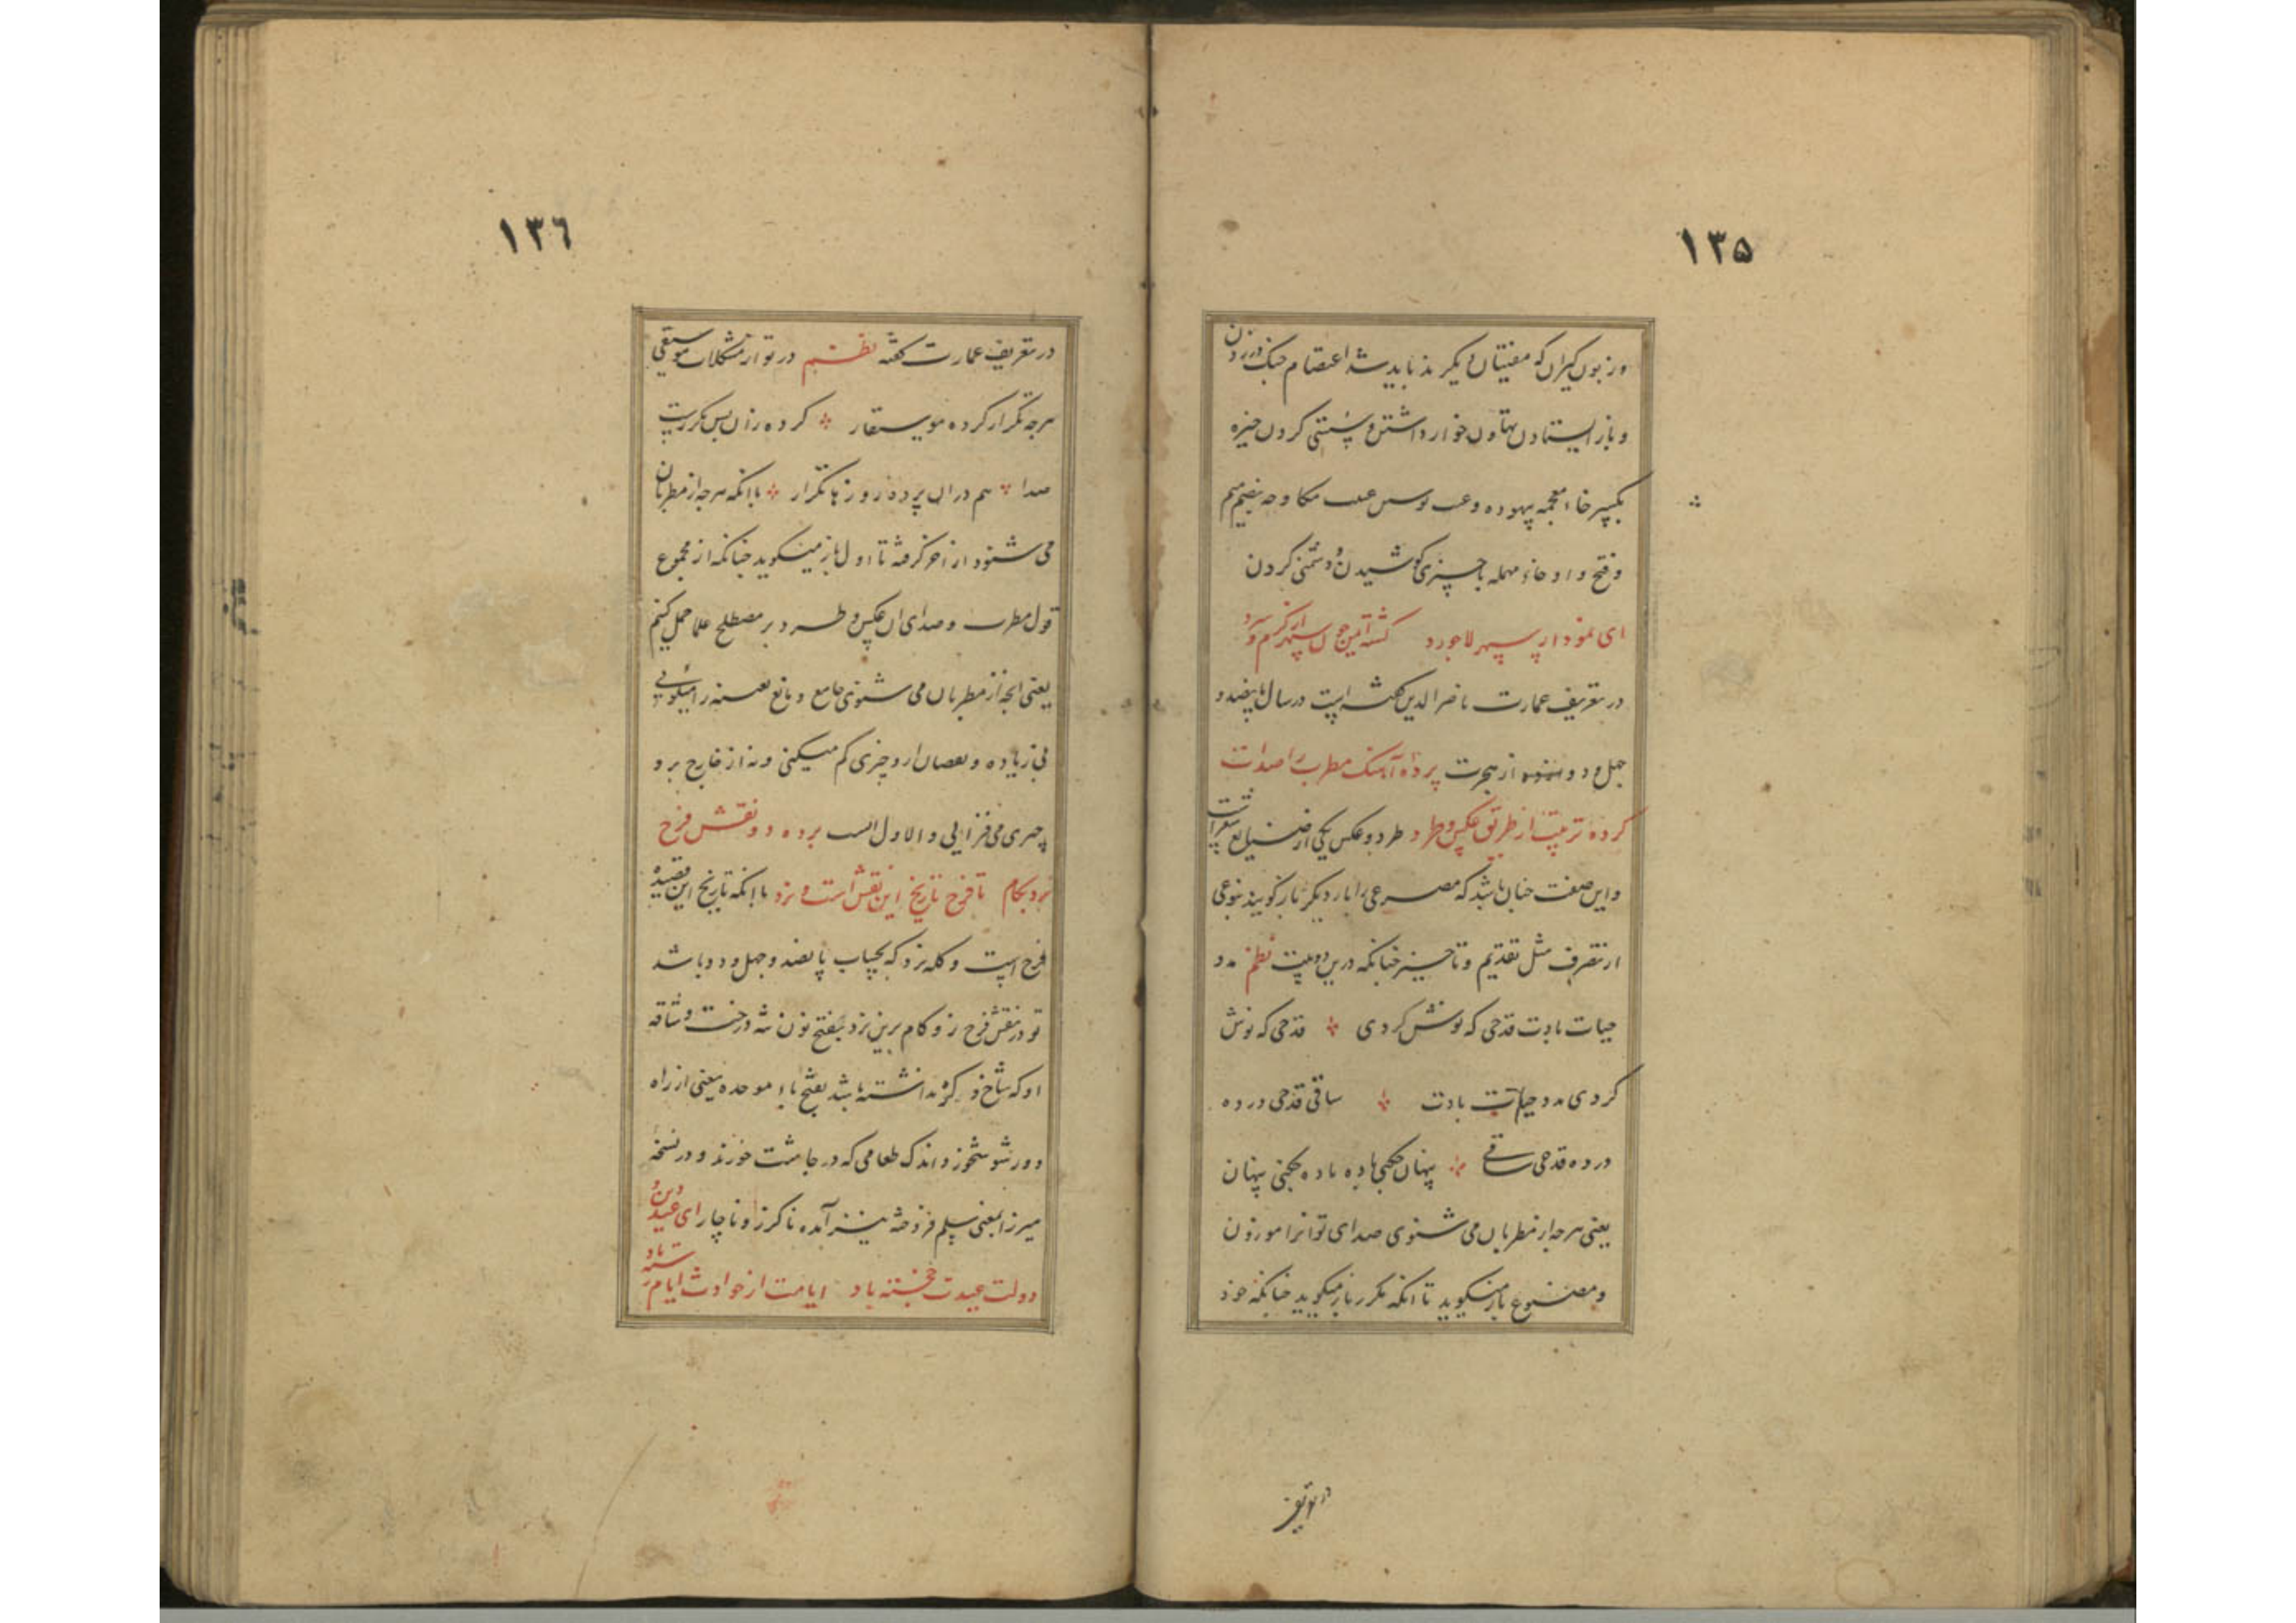 ١٣٥
وز بون کیران که مفتیان دیگرند باید شد اعتصام چنک در زدن
و باز ایستادن تهاون خوار داشتن و سستی کردن خیره
بکسر خاء معجمه بیهوده و عبث مکاوحه بضم میم
و فتح واو حاء مهمله با چیزی کوشیدن و دشمنی کردن
ای نمودار سپهر لاجورد کشته آمین چون سپهر از کرم و سرد
در تعریف عمارت ناصر الدین گفته است در سال پانصد و
چهل و دو از هجرت پرده آهنک مطرب را صدات
کرده ترتیب از طریق عکس و طرد طرد و عکس یکی از صنایع شعر است
و این صفت چنان باشد که مصرعی را بار دیگر باز گویند بنوعی
از تصرف مثل تقدیم و تاخیر چنانکه درین دو بیت نظم مدد
حیات بادت قدحی که نوش کردی قدحی که نوش
کردی مدد حیات بادت ساقی قدحی در ده
در ده قدحی ساقی پنهان چکنی باده باده چکنی پنهان
یعنی هرچه از مطربان می شنوی صدای تو انرا موزون
و مصنوع باز میکوید تا آنکه مکرر باز میکوید چنانکه خود
در تعریف
١٣٦
در تعریف عمارت گفته نظم در تو از مشکلات موسیقی
هرچه تکرار کرده موسیقار کرده زان پس مکررت
صدا هم در ان پرده روز با تکرار با انکه هرچه از مطربان
می شنود از آخر گرفته تا اول باز میکوید چنانکه از مجموع
قول مطرب و صدای ان عکس و طرد بر مصطلح علما حمل کنیم
یعنی انچه از مطربان می شنوی جامع و مانع بعینه را میکویی
نی زیاده و نقصان از و چیزی کم میکنی و نه از خارج بر و
چیزی می فزایی و الاول انسب برده دو نقش فرخ
نرد بکام تا فرخ تاریخ این نقش است و نرد با انکه تاریخ این قصیده
فرخ است و کله نرد که بحساب پانصد و چهل و دو باشد
تو در نقش فرخ نرد کام برین نرد بفتح نون تنه درخت و ساقه
او که شاخ و کره نداشته باشد بفتح باء موحده یعنی از راه
دور شو اندک طعامی که در چاشت خورند و در نسخه
میرزا بمعنی سلم فروخته نیز آمده ناگزر و ناچار ای عید دین و
دولت عیدت خجسته باد ایامت از حوادث ایام رسته باد